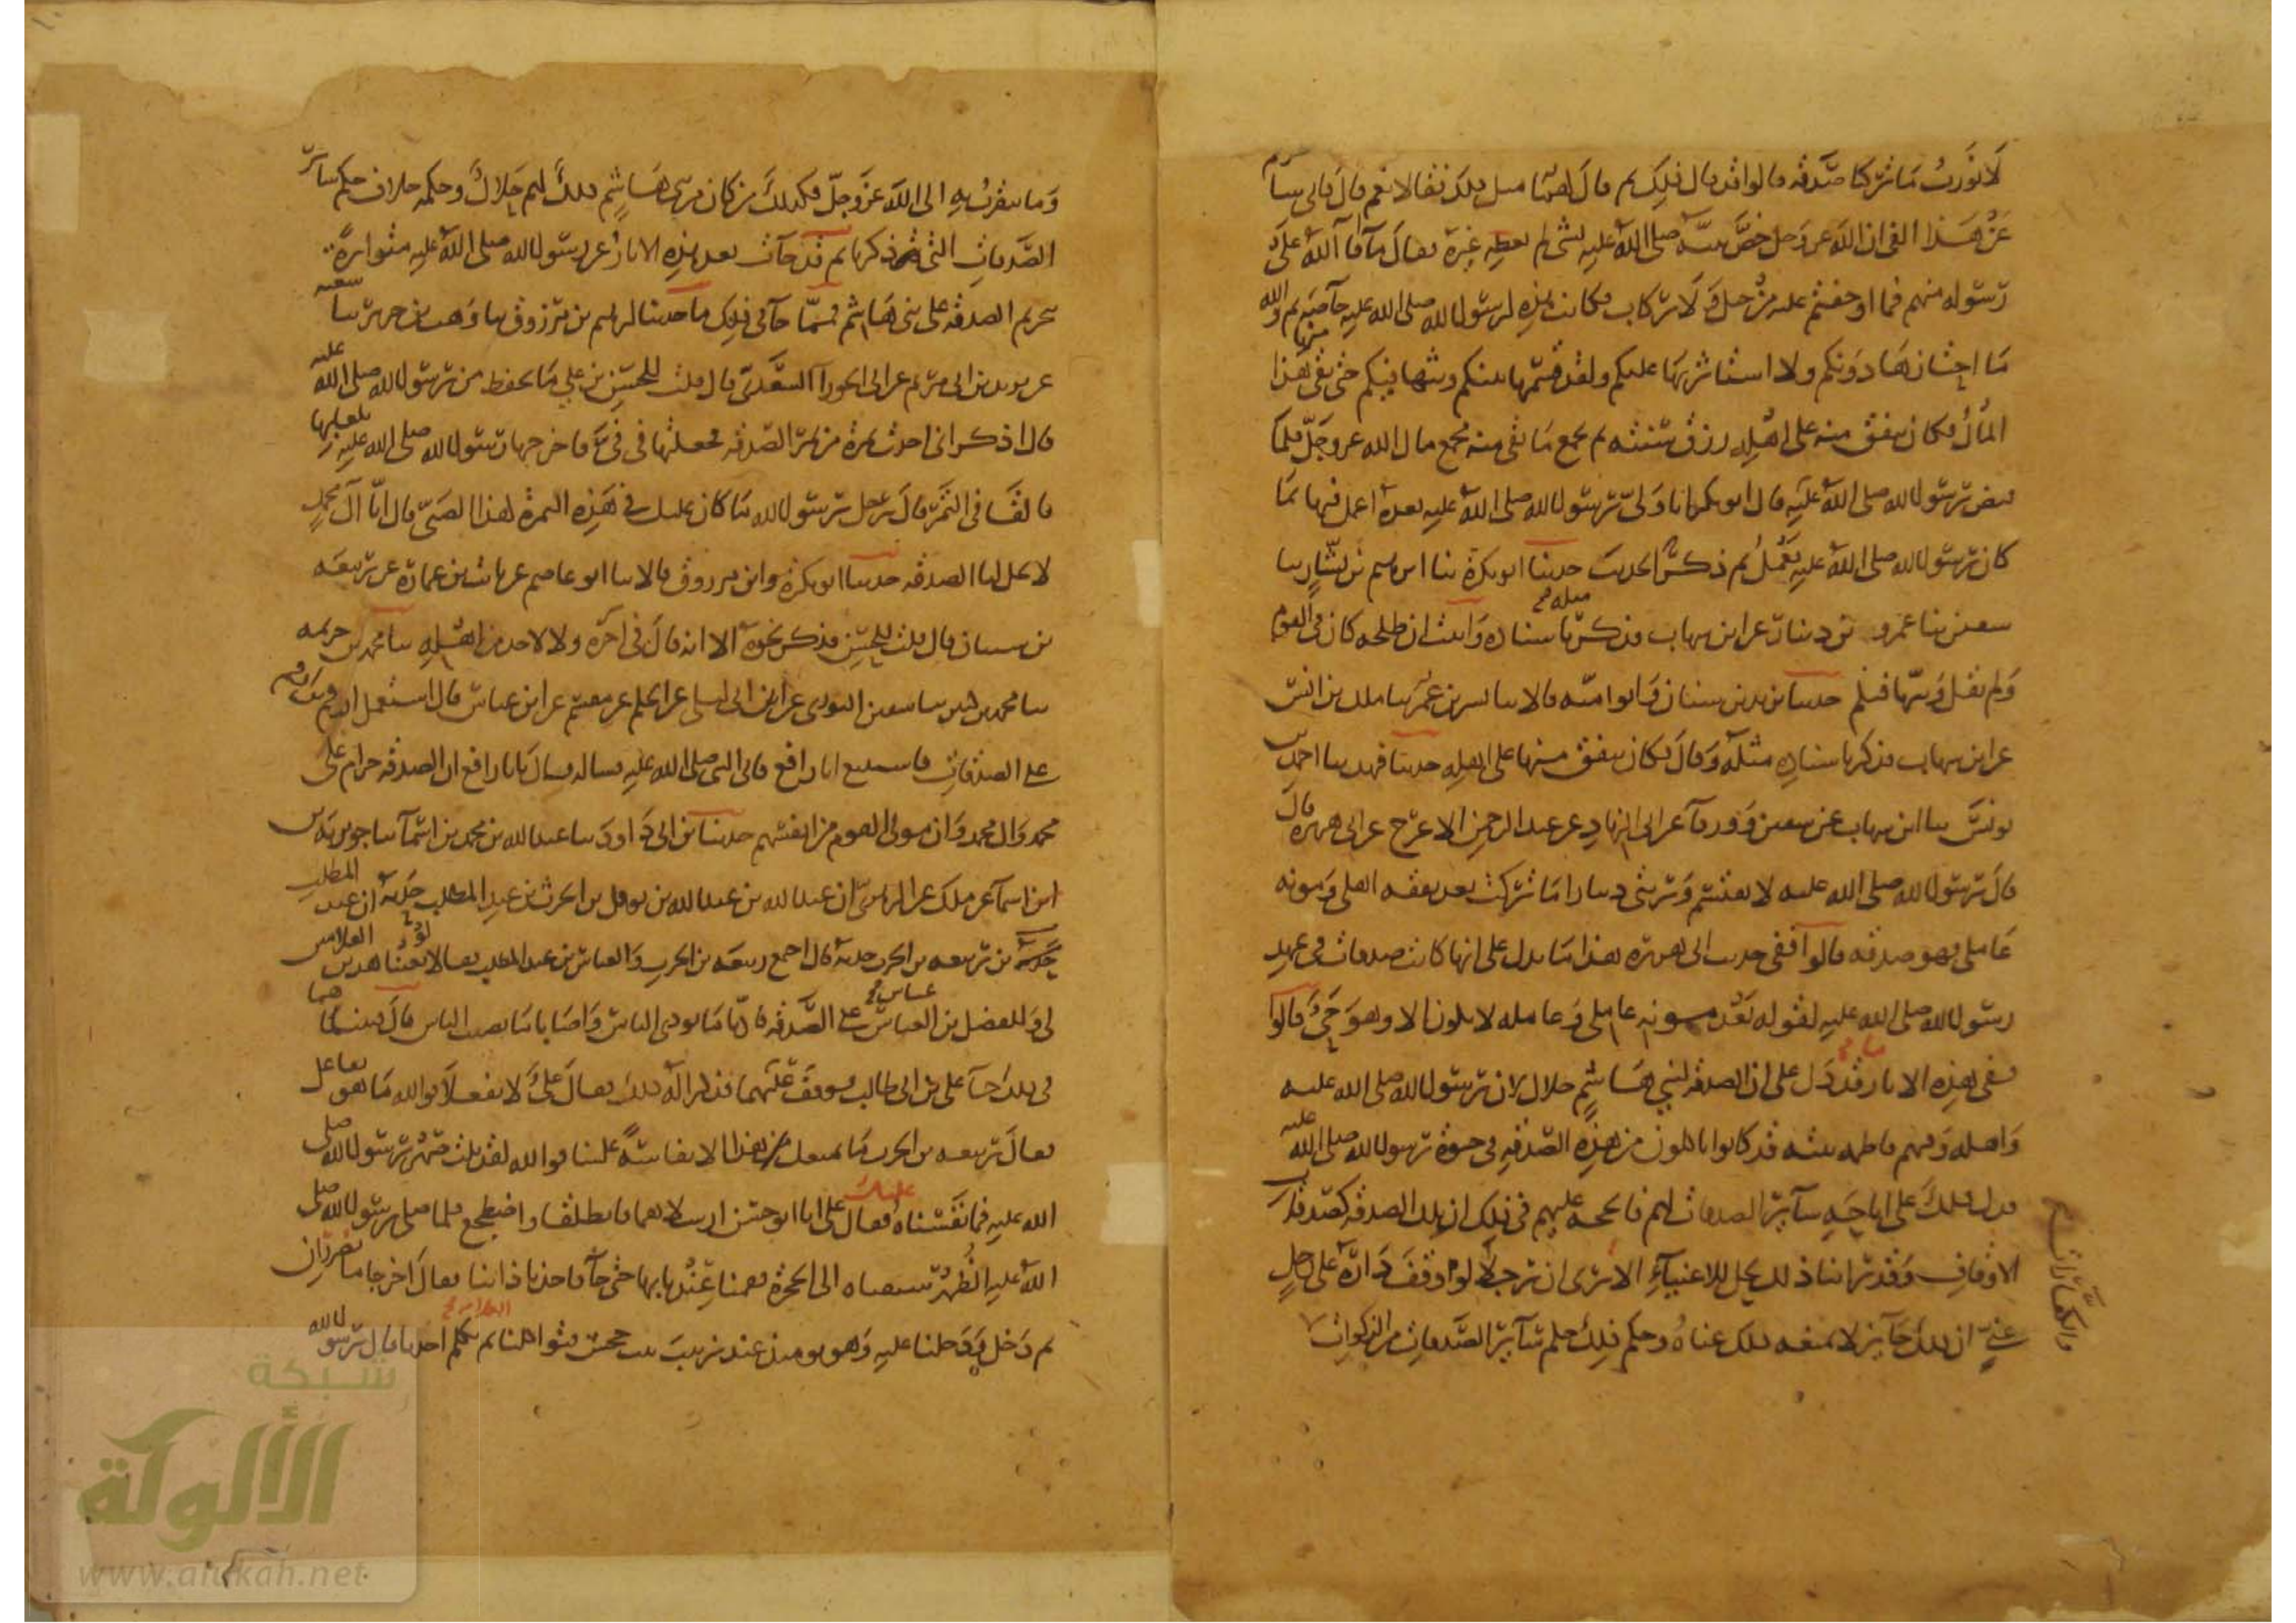 لا نورث ما تركنا صدقة قالوا قد قال ذلك ثم قال لهما مثل ذلك فقالا نعم قال فاني سا
عن هذا الفئ ان الله عز وجل خص نبيه صلى الله عليه بشئ لم يعطه غيره فقال ما أفاء الله على
رسوله منهم فما اوجفتم عليه من خيل ولا ركاب فكانت هذه لرسول الله صلى الله عليه خاصة ثم والله
ما احتازها دونكم ولا استأثر بها عليكم ولقد قسمها بينكم وبثها فيكم حتى بقي منها هذا
المال فكان ينفق منه على اهله رزق سنة ثم يجمع ما بقي منه مجمع مال الله عز وجل فلما
قبض رسول الله صلى الله عليه قال ابو بكر انا ولي رسول الله صلى الله عليه بعده اعمل فيها بما
كان رسول الله صلى الله عليه يعمل ثم ذكر الحديث حدثنا ابو بكرة ثنا ابرهيم بن بشار ثنا
سفين ثنا عمرو بن دينار عن ابن شهاب فذكر مثله باسناده واثبت ان طلحة كان في القوم
ولم يقل وبثها فيكم حدثنا يزيد بن سنان وابو امية قالا ثنا بشر بن عمر ثنا ملك بن انس
عن ابن شهاب فذكر باسناده مثله وقال فكان ينفق منها على اهله حدثنا فهد ثنا احمد بن
يونس ثنا ابن شهاب عن سفين وورقاء عن ابي الزناد عن عبد الرحمن الاعرج عن ابي هريرة قال
قال رسول الله صلى الله عليه لا يقتسم ورثتي دينارا ما تركت بعد نفقة اهلي ومونة
عاملي فهو صدقة قالوا ففي حديث ابي هريرة هذا ما يدل على انها كانت صدقات في عهد
رسول الله صلى الله عليه لقوله بعد مونة عاملي وعامله لا يكون الا وهو حي قالوا
ففي هذه الاثار ما قد دل على ان الصدقة لبني هاشم حلال لان رسول الله صلى الله عليه
واهله وفيهم فاطمة بنته قد كانوا ياكلون من هذه الصدقة في حيوة رسول الله صلى الله عليه
فدل ذلك على اباحة سائر الصدقات لهم فالحجة عليهم في ذلك ان تلك الصدقة كصدقات
الاوقاف وقد راينا ذلك يحل للاغنياء الا ترى ان رجلا لو اوقف داره على رجل
غني ان ذلك جائز لا يمنعه ذلك غناه وحكم ذلك خلاف حكم سائر الصدقات من الزكوات
والكفارات
وما يتقرب به الى الله عز وجل فكذلك من كان من بني هاشم ذلك لهم حلال وحكمه خلاف حكم سائر
الصدقات التي ذكرنا ثم قد جاءت بعد هذه الاثار عن رسول الله صلى الله عليه متواترة
بتحريم الصدقة على بني هاشم فمما جاء في ذلك ما حدثنا ابرهيم بن مرزوق ثنا وهب بن جرير ثنا شعبة
عن بريد بن ابي مريم عن ابي الحوراء السعدي قال قلت للحسن بن علي ما تحفظ من رسول الله صلى الله عليه
قال اذكر اني اخذت تمرة من تمر الصدقة فجعلتها في في فاخرجها رسول الله صلى الله عليه بلعابها
فالقاها في التمر قال رجل يا رسول الله ما كان عليك في هذه التمرة لهذا الصبي قال انا آل محمد
لا تحل لنا الصدقة حدثنا ابو بكرة وابن مرزوق قالا ثنا ابو عاصم عن ثابت بن عمارة عن ربيعة
بن شيبان قال قلت للحسن فذكر نحوه الا انه قال في آخره ولا لاحد من اهله ثنا محمد بن خزيمة
ثنا محمد بن كثير ثنا سفين الثوري عن ابن ابي ليلى عن الحكم عن مقسم عن ابن عباس قال استعمل ارقم
على الصدقات فاستتبع ابا رافع فاتى النبي صلى الله عليه فساله فقال يا ابا رافع ان الصدقة حرام على
محمد وال محمد وان مولى القوم من انفسهم حدثنا ابن ابي داود ثنا عبد الله بن محمد بن اسماء ثنا جويرية بن
ابن اسماء عن ملك عن الزهري ان عبد الله بن عبد الله بن نوفل بن الحرث بن عبد المطلب حدثه ان عبد المطلب
بن ربيعة بن الحرث حدثه قال اجتمع ربيعة بن الحرث والعباس بن عبد المطلب فقالا لو بعثنا هذين الغلامين
لي وللفضل بن العباس على الصدقة فاديا ما يودي الناس واصابا ما يصيب الناس قال فبينما هما
في ذلك جاء علي بن ابي طالب فوقف عليهما فذكرا له ذلك فقال علي لا تفعلا فوالله ما هو بفاعل
فقال ربيعة بن الحرث ما يمنعك من هذا الا نفاسة علينا فوالله لقد نلت صهر رسول الله صلى
الله عليه فما نفسناه عليك فقال علي انا ابو حسن ارسلاهما فانطلقا واضطجع فلما صلى رسول الله صلى
الله عليه الظهر سبقناه الى الحجرة فقمنا عندها حتى جاء فاخذ باذاننا فقال اخرجا ما تصرران
ثم دخل ودخلنا عليه وهو يومئذ عند زينب بنت جحش فتواكلنا الكلام ثم تكلم احدنا قال يا رسول الله
شبكة
الألوكة
www.alukah.net